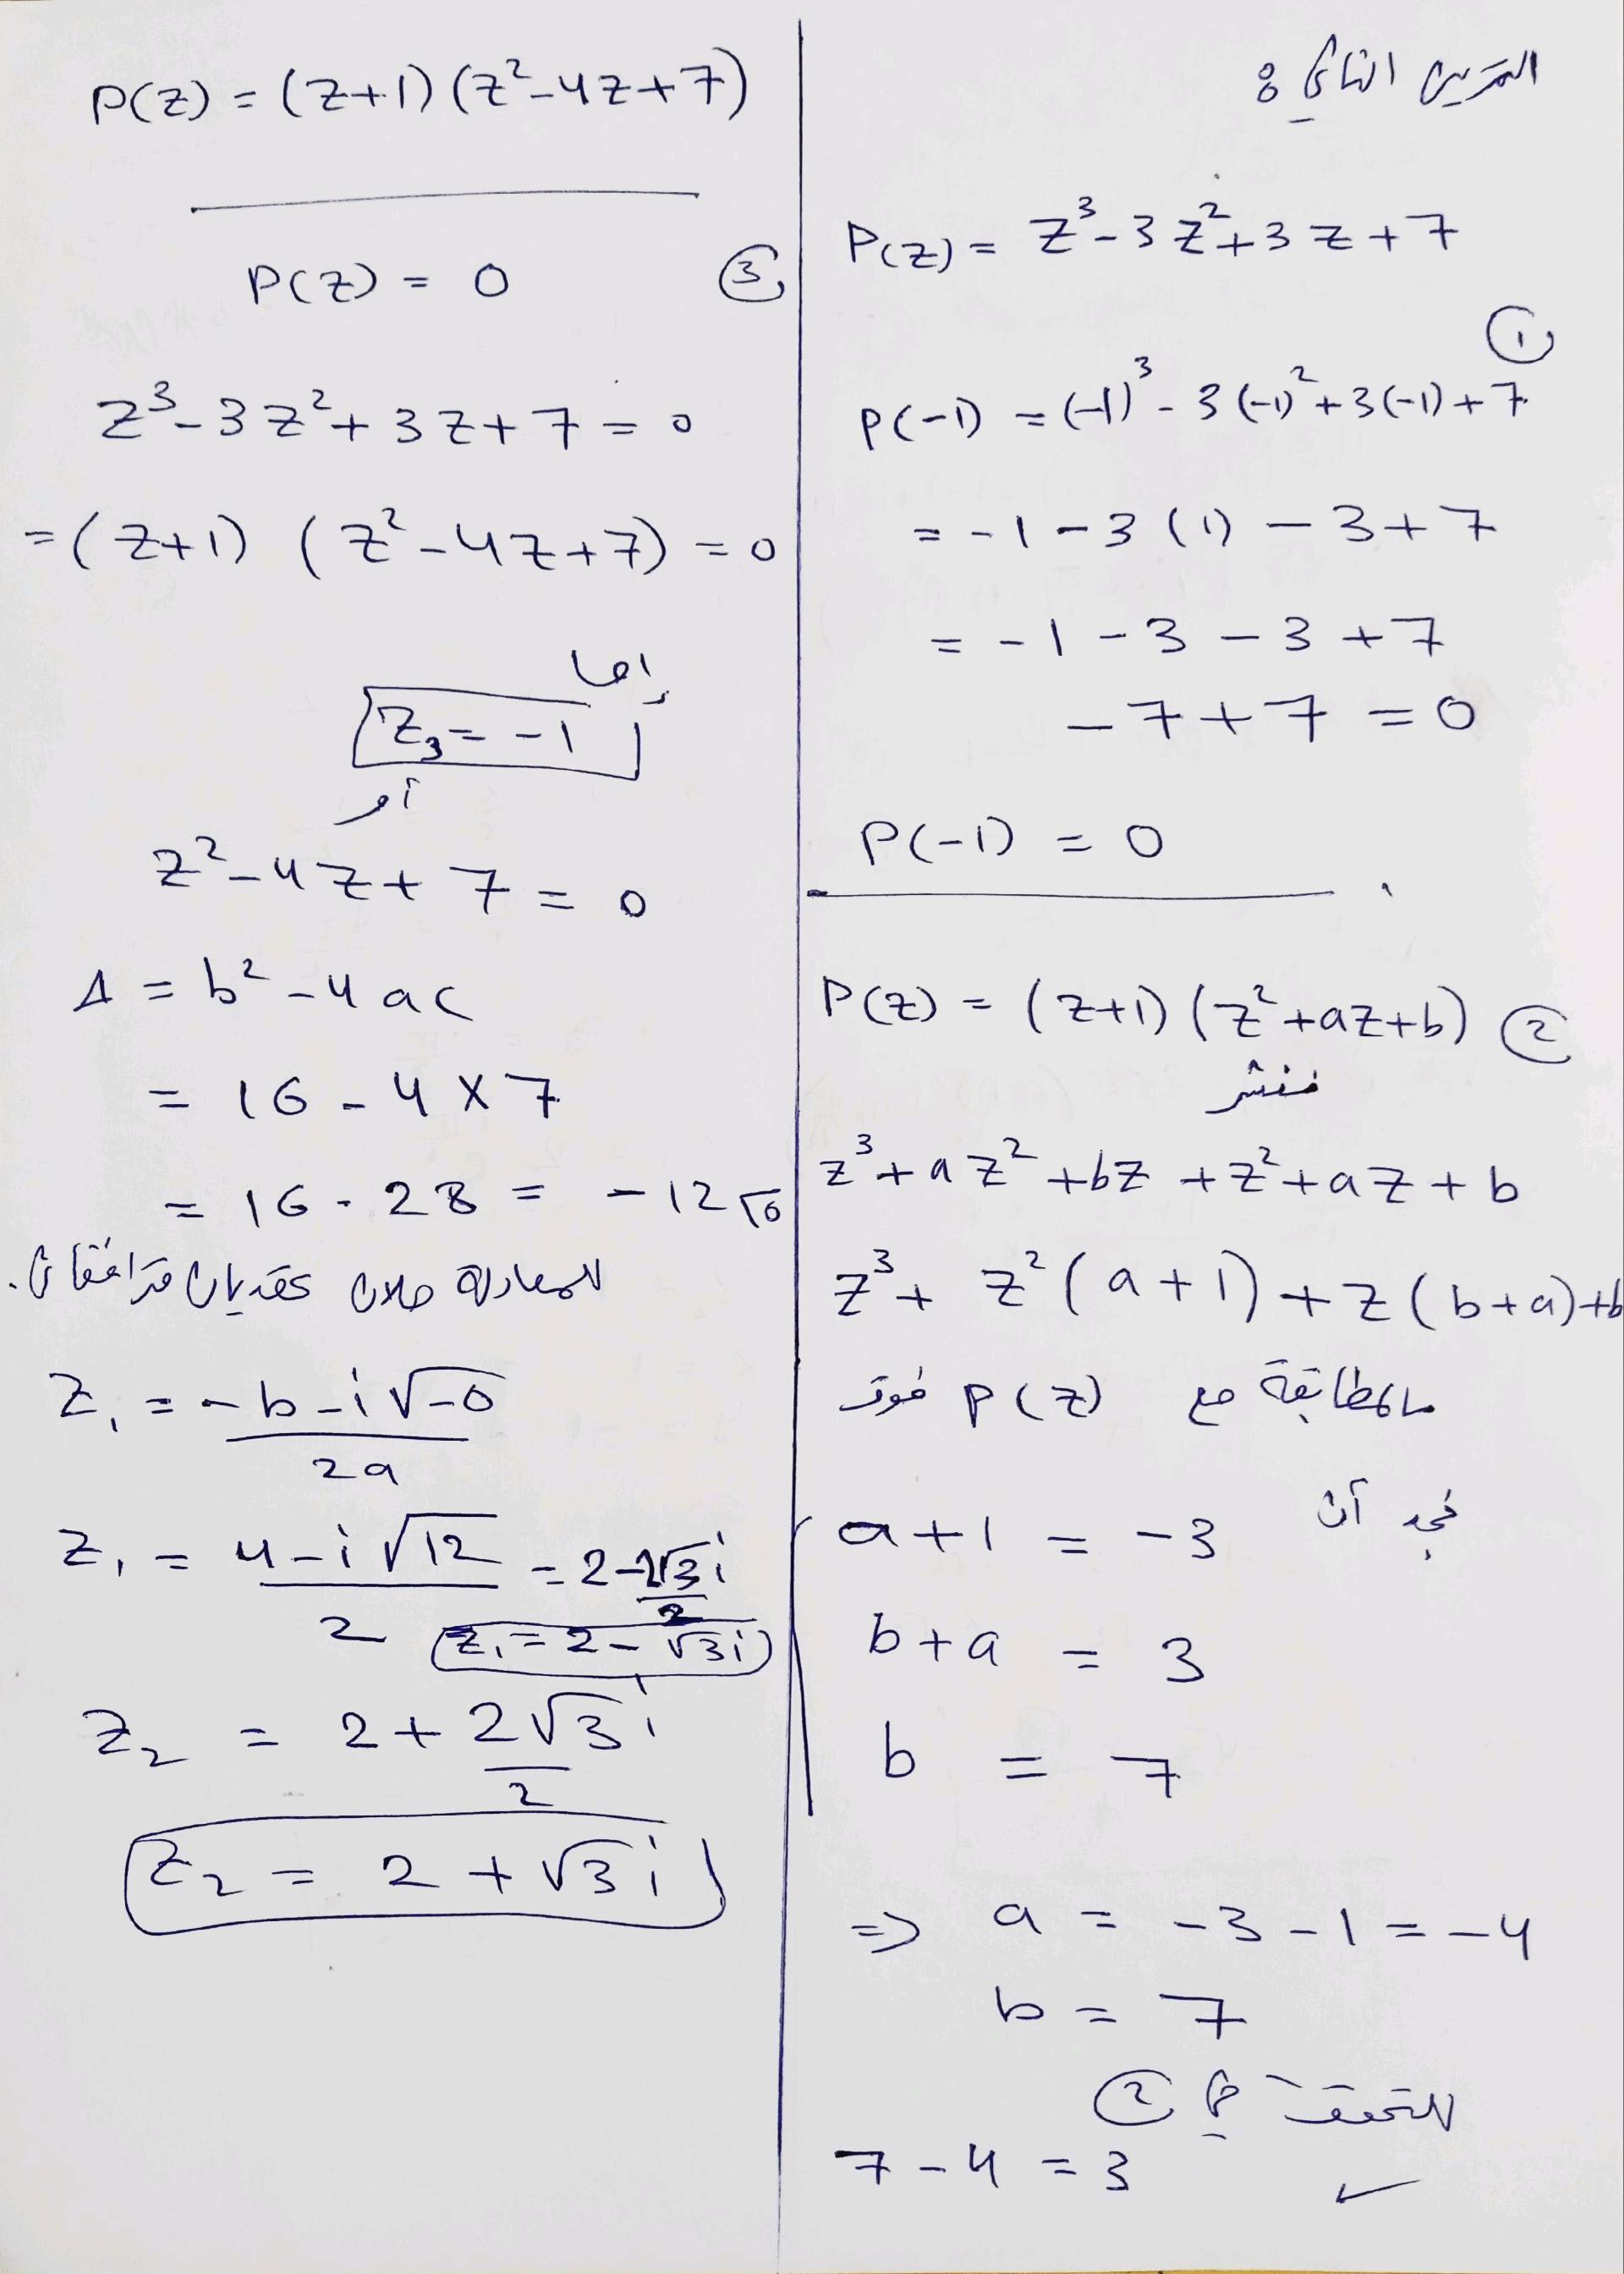 التمرين الثاني :
P(z) = z³ - 3z² + 3z + 7
①
P(-1) = (-1)³ - 3(-1)² + 3(-1) + 7
= -1 - 3(1) - 3 + 7
= -1 - 3 - 3 + 7
-7 + 7 = 0
P(-1) = 0
P(z) = (z+1)(z²+az+b) ②
ننشر
z³ + az² + bz + z² + az + b
z³ + z²(a+1) + z(b+a) + b
بالمطابقة مع P(z) فوق
نجد أن
a+1 = -3
b+a = 3
b = 7
=> a = -3 - 1 = -4
b = 7
للتحقق في ②
7 - 4 = 3 ✓
P(z) = (z+1)(z²-4z+7)
P(z) = 0 ③
z³ - 3z² + 3z + 7 = 0
= (z+1) (z²-4z+7) = 0
إما
z₃ = -1
أو
z² - 4z + 7 = 0
Δ = b² - 4ac
= 16 - 4 × 7
= 16 - 28 = -12 < 0
للمعادلة حلان عقديان مترافقان.
z₁ = (-b - i√-Δ)/2a
z₁ = (4 - i√12)/2 = 2 - 2√3 i/2
z₁ = 2 - √3 i
z₂ = 2 + 2√3 i/2
z₂ = 2 + √3 i